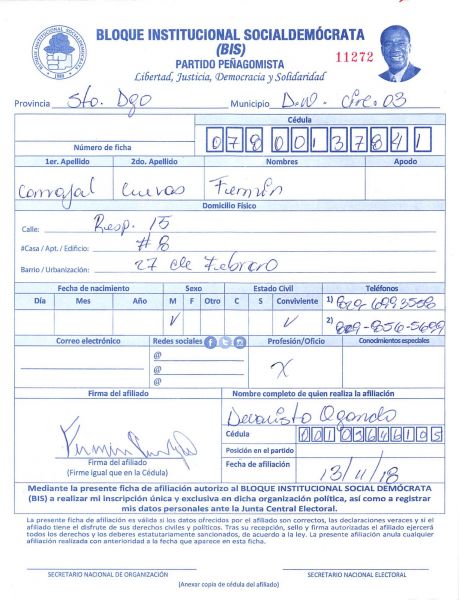 BLOQUE INSTITUCIONAL SOCIALDEMÓCRATA
(BIS)
PARTIDO PEÑAGOMISTA
11272
Libertad, Justicia, Democracia y Solidaridad
Provincia Sto. Dgo Municipio D.N. Circ. 03
Cédula
Número de ficha 07800137841
1er. Apellido 2do. Apellido Nombres Apodo
Carvajal Cuevas Fermín
Domicilio Físico
Calle: Resp. 15
#Casa / Apt. / Edificio: # 8
Barrio / Urbanización: 27 de Febrero
Fecha de nacimiento Sexo Estado Civil Teléfonos
Día Mes Año M F Otro C S Conviviente 1) 829-6993558
2) 809-856-5699
Correo electrónico Redes sociales Profesión/Oficio Conocimientos especiales
@
@
@
X
Firma del afiliado Nombre completo de quien realiza la afiliación
Devaristo Ogando
Cédula
Posición en el partido
Firma del afiliado
(Firme igual que en la Cédula)
Fecha de afiliación 13/11/18
Mediante la presente ficha de afiliación autorizo al BLOQUE INSTITUCIONAL SOCIAL DEMÓCRATA
(BIS) a realizar mi inscripción única y exclusiva en dicha organización política, así como a registrar
mis datos personales ante la Junta Central Electoral.
La presente ficha de afiliación es válida si los datos ofrecidos por el afiliado son correctos, las declaraciones veraces y si el
afiliado tiene el disfrute de sus derechos civiles y políticos. Tras su recepción, sello y firma autorizadas el afiliado ejercerá
todos los derechos y los deberes estatutariamente sancionados, de acuerdo a la ley. La presente afiliación anula cualquier
afiliación realizada con anterioridad a la fecha que aparece en esta ficha.
SECRETARIO NACIONAL DE ORGANIZACIÓN SECRETARIO NACIONAL ELECTORAL
(Anexar copia de cédula del afiliado)